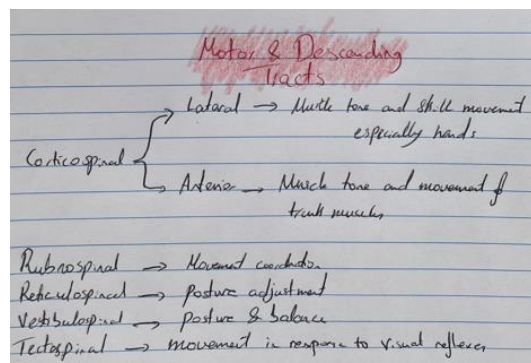 Motor & Descending
Tracts
Lateral → Muscle tone and skill movement
especially hands
Corticospinal
Anterior → Muscle tone and movement of
trunk muscles
Rubrospinal → Movement coordination
Reticulospinal → Posture adjustment
Vestibulospinal → posture & balance
Tectospinal → movement in response to visual reflexes